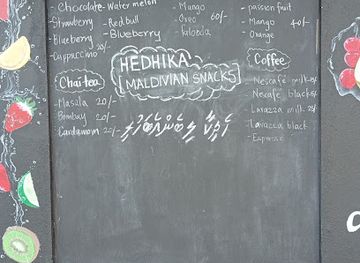 Chocolate
Strawberry
Blueberry
Cappuccino 30/-
Water melon
- Redbull
- Blueberry
- Mango
- Oreo 60/-
passion fruit
- Mango 40/-
- Orange
HEDHIKA
[MALDIVIAN SNACKS]
Chai tea
- Masala 20/-
- Bombay 20/-
- Cardamom 20/-
Coffee
- Nescafé milk
- Nescafe black
- Lavazza milk
- Lavazza black
- Espresso